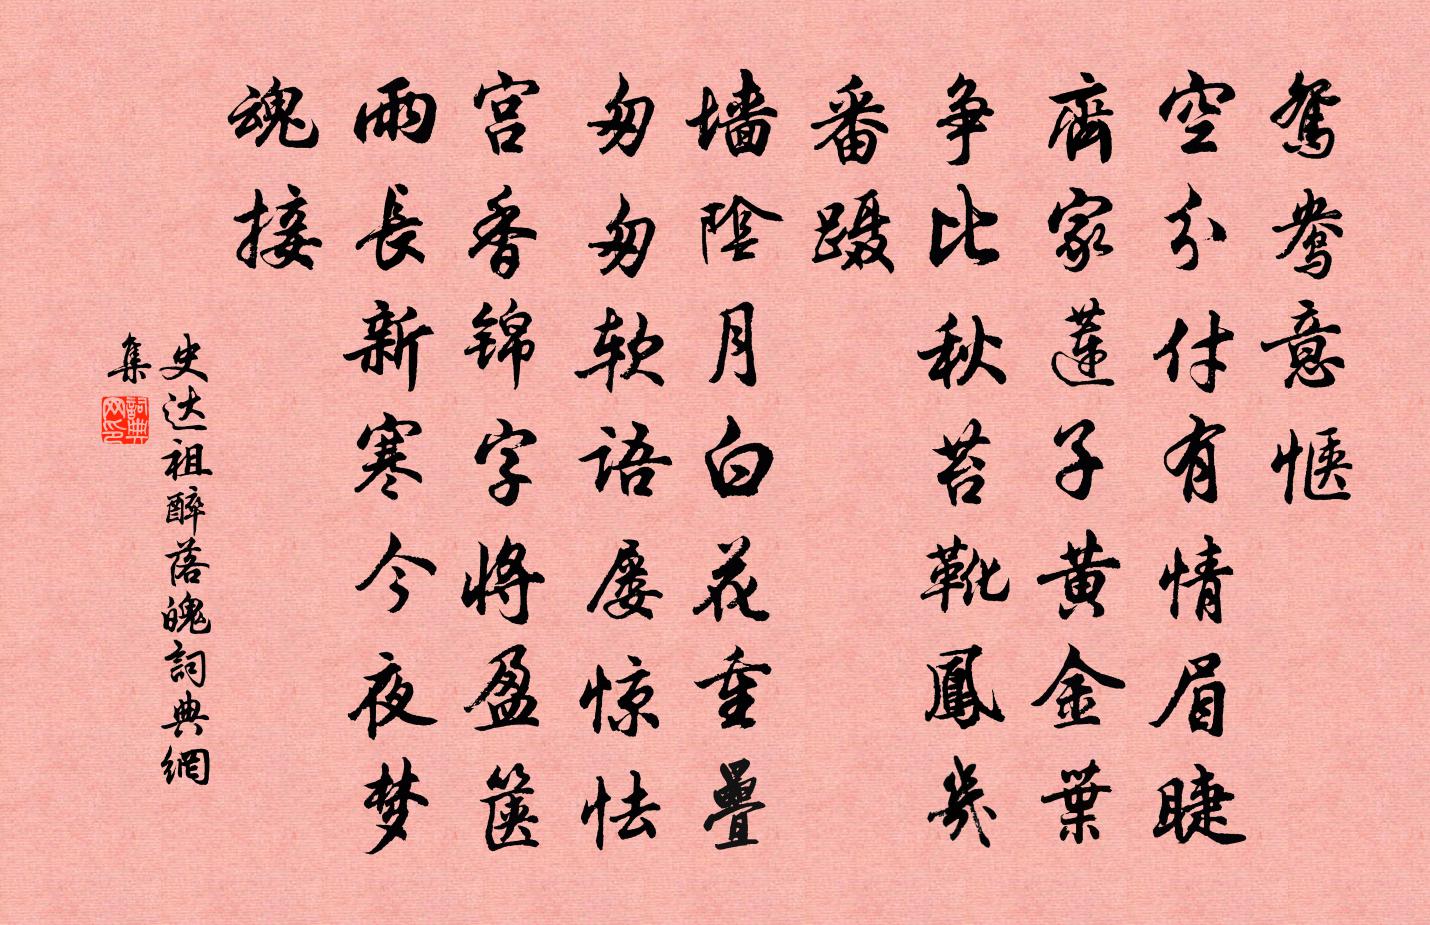 鴛鴦意惬
空分付有情眉睫
齊家蓮子黄金葉
争比秋苔靴鳳幾
番蹑
墙陰月白花重疊
匆匆软語屡惊怯
宫香锦字將盈箧
雨長新寒今夜梦
魂接
史达祖醉落魄詞典網
集
詞典网印